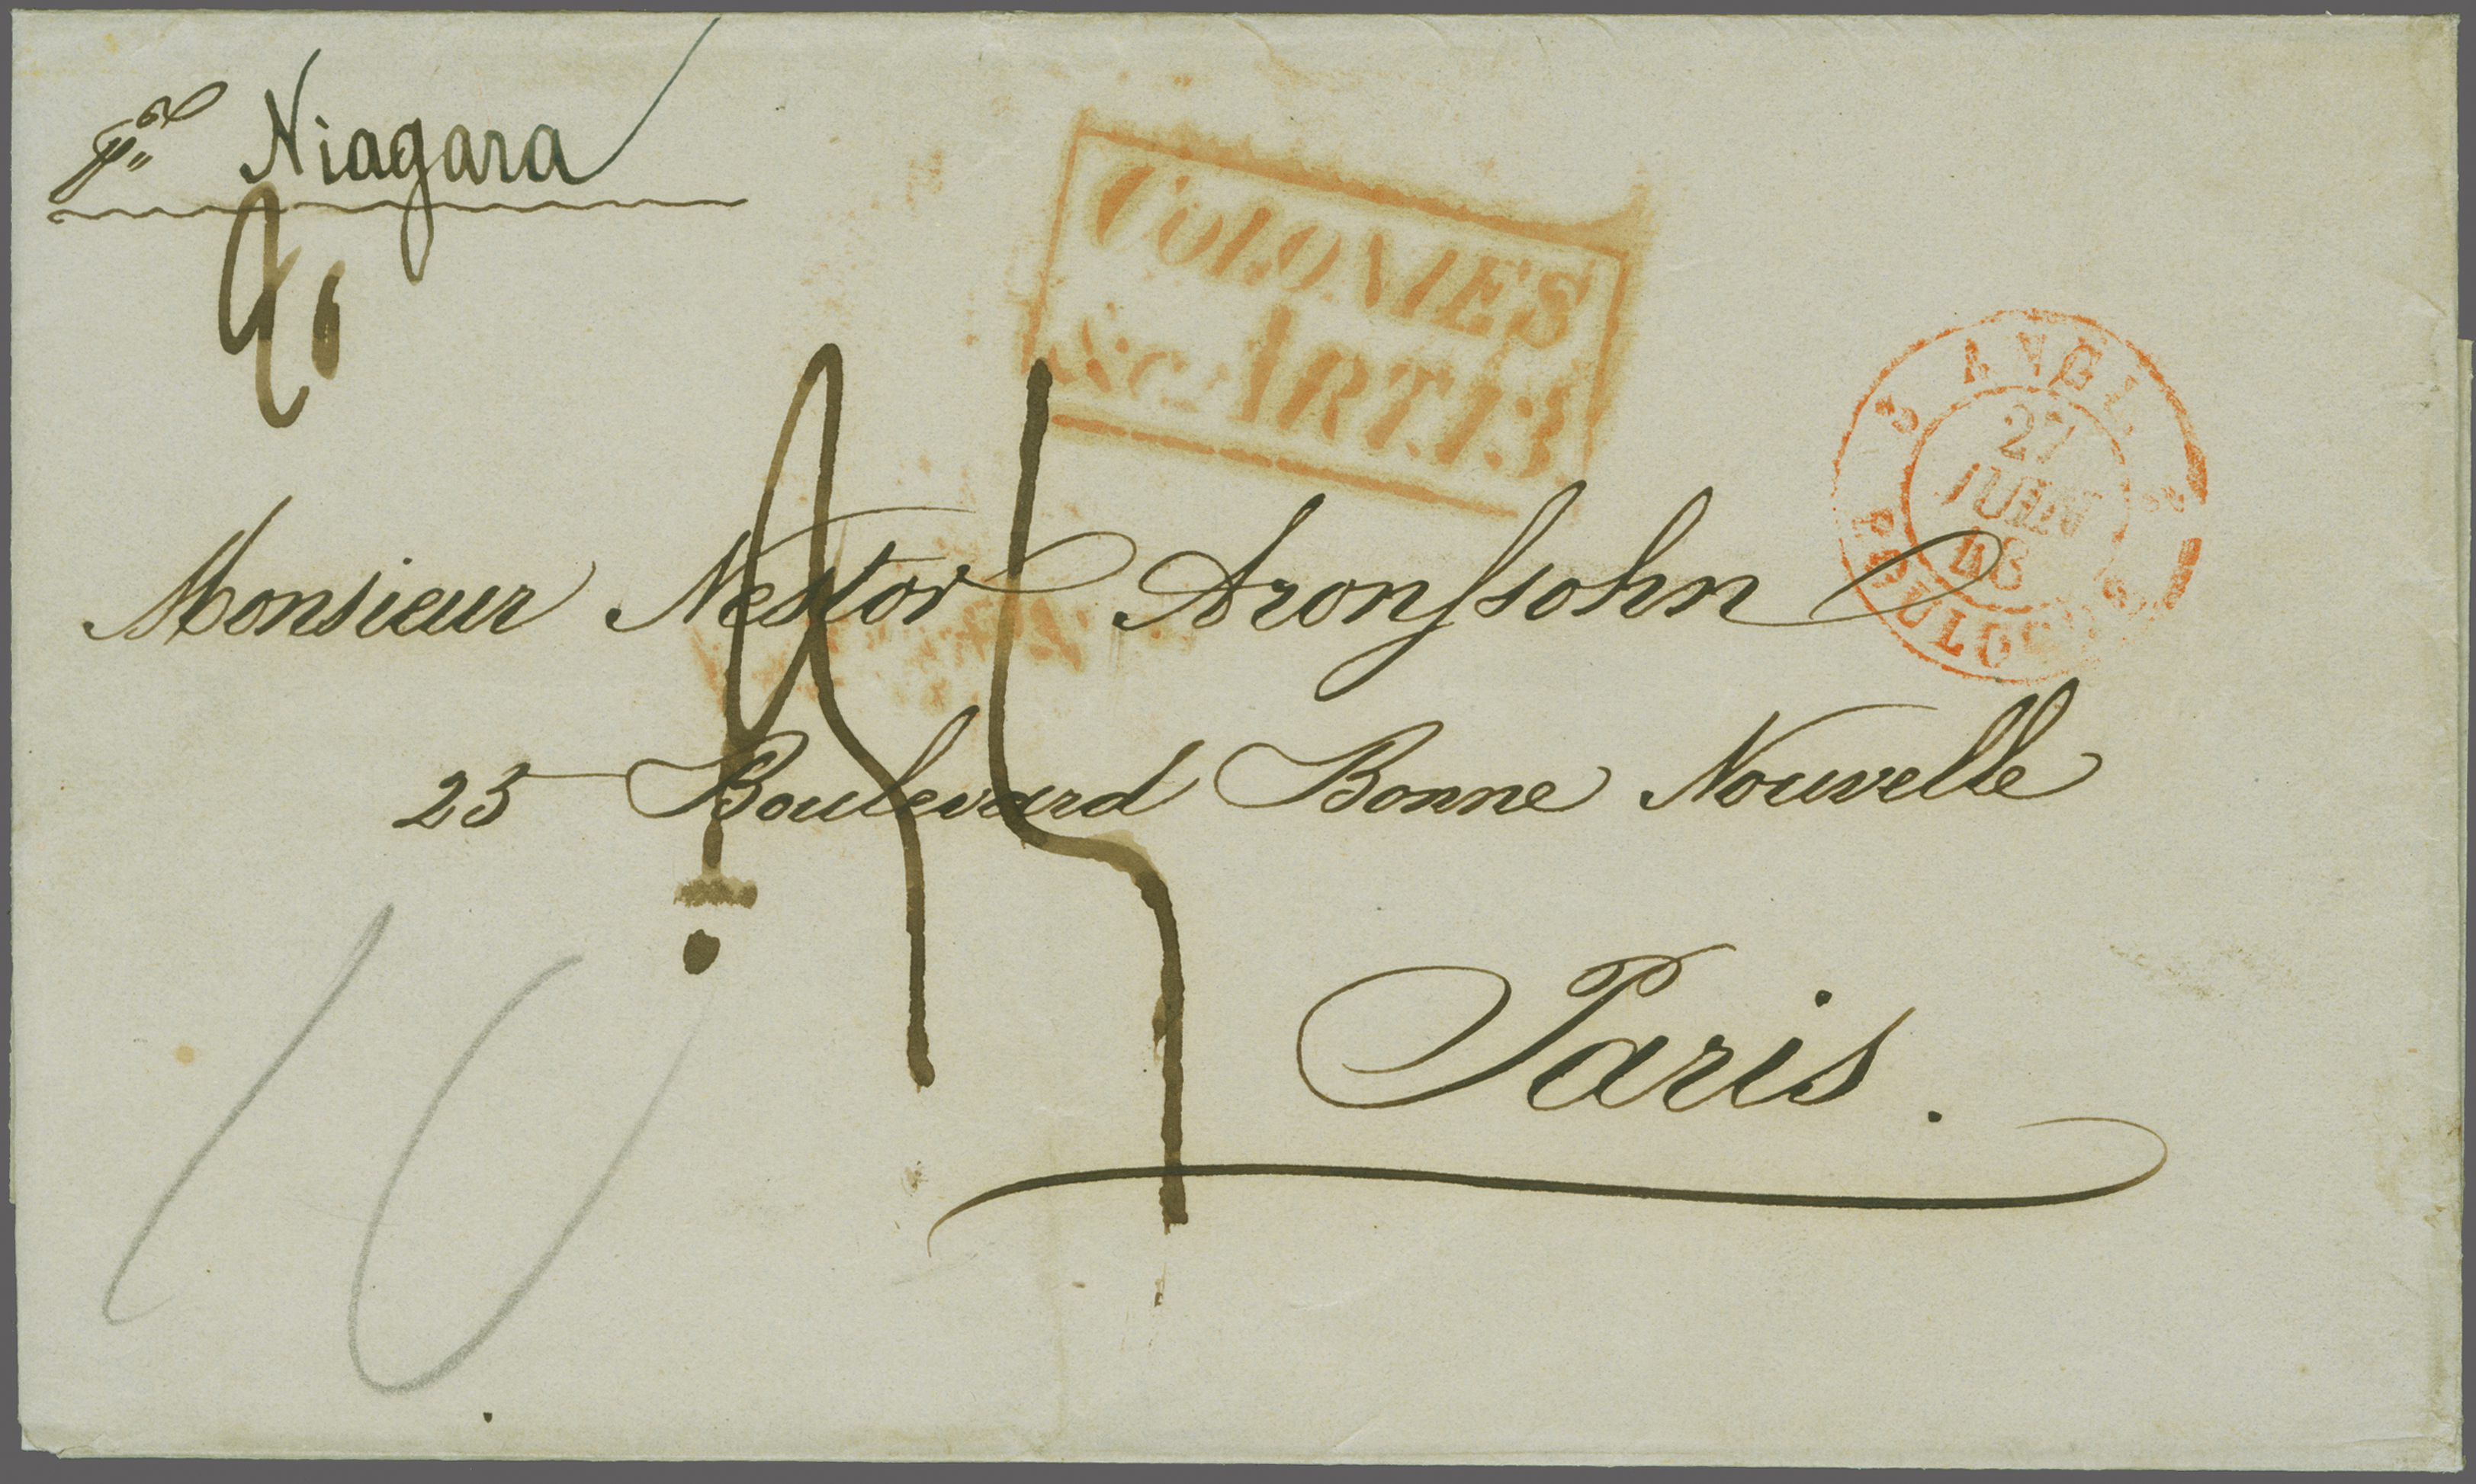 pr Niagara
COLONIES
&c. ART.13.
3 ANGL. 3
27
JUIN
48
BOULOGNE
Monsieur Nestor Aronssohn
25 Boulevard Bonne Nouvelle
Paris.
10